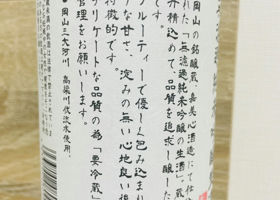 岡山の銘醸蔵、嘉美心酒造にて仕
れた「無濾過純米吟醸の生酒」蔵
丹精込めて品質を追求し醸した
です。
フルーティーで優しく包み込ま
な甘さ、淀みの無い心地良い
特徴的です。
デリケートな品質の為「要冷蔵」
管理をお願いします。
●岡山三大河川 高梁川伏流水使用